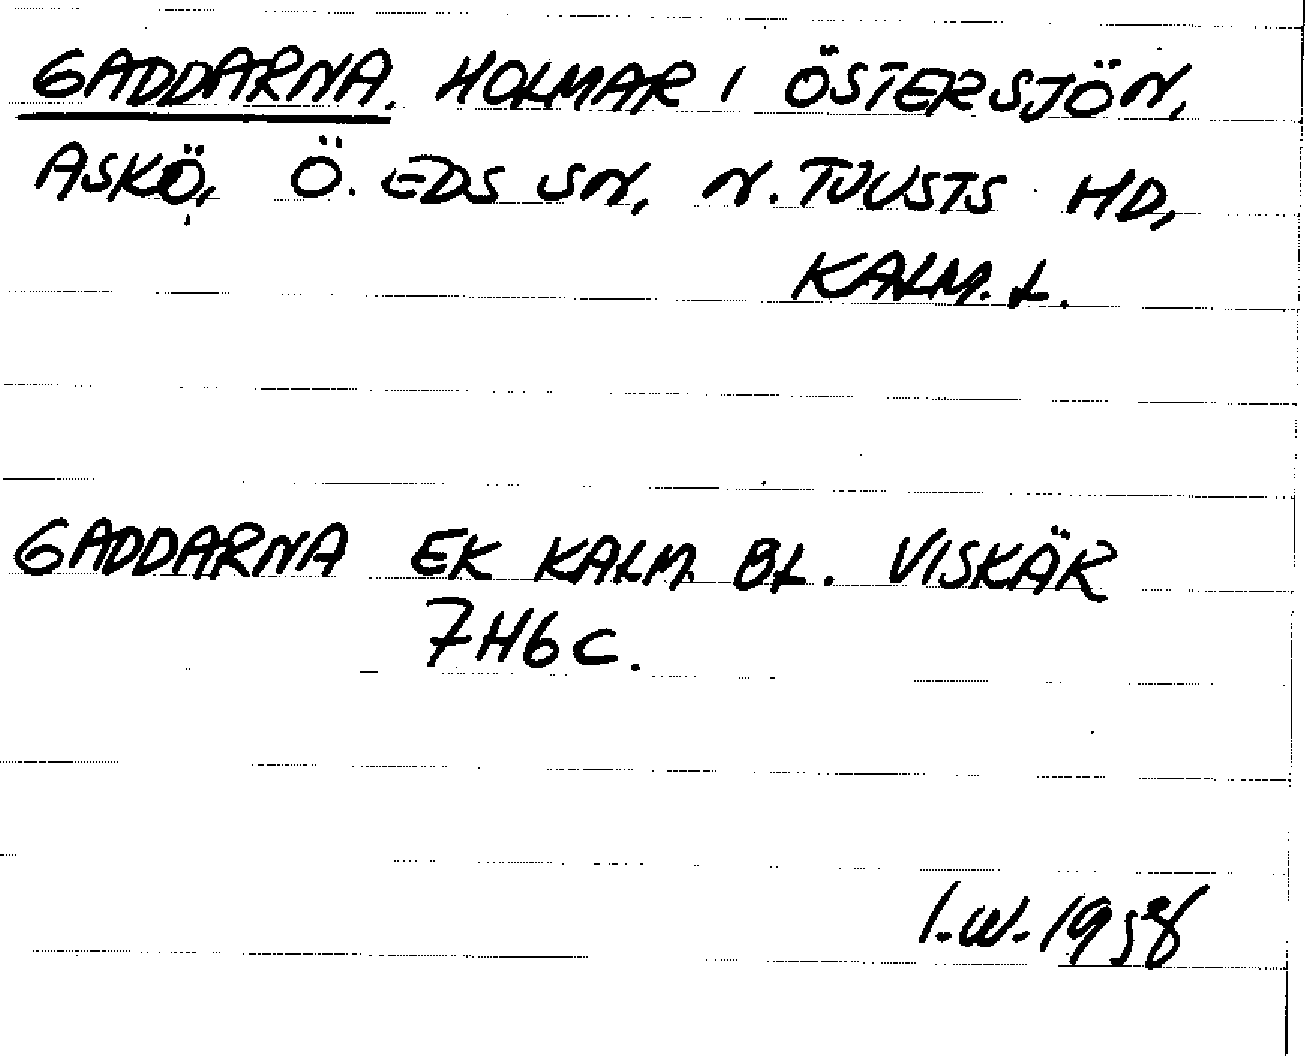 GADDARNA. HOLMAR I ÖSTERSJÖN,
ASKÖ, Ö. EDS SN, N. TJUSTS HD,
KALM. L.
GADDARNA EK KALM BL. VISKÄR
7H6c.
I.W. 1958